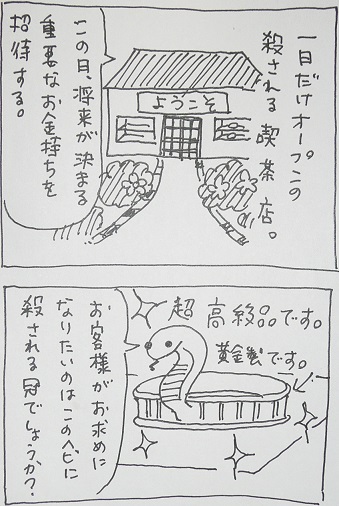 一日だけオープンの
殺される喫茶店。
ようこそ
この日、将来が決まる
重要なお金持ちを
招待する。
超高級品です。
黄金製です。
お客様がお求めに
なりたいのはこのヘビに
殺される冠でしょうか?